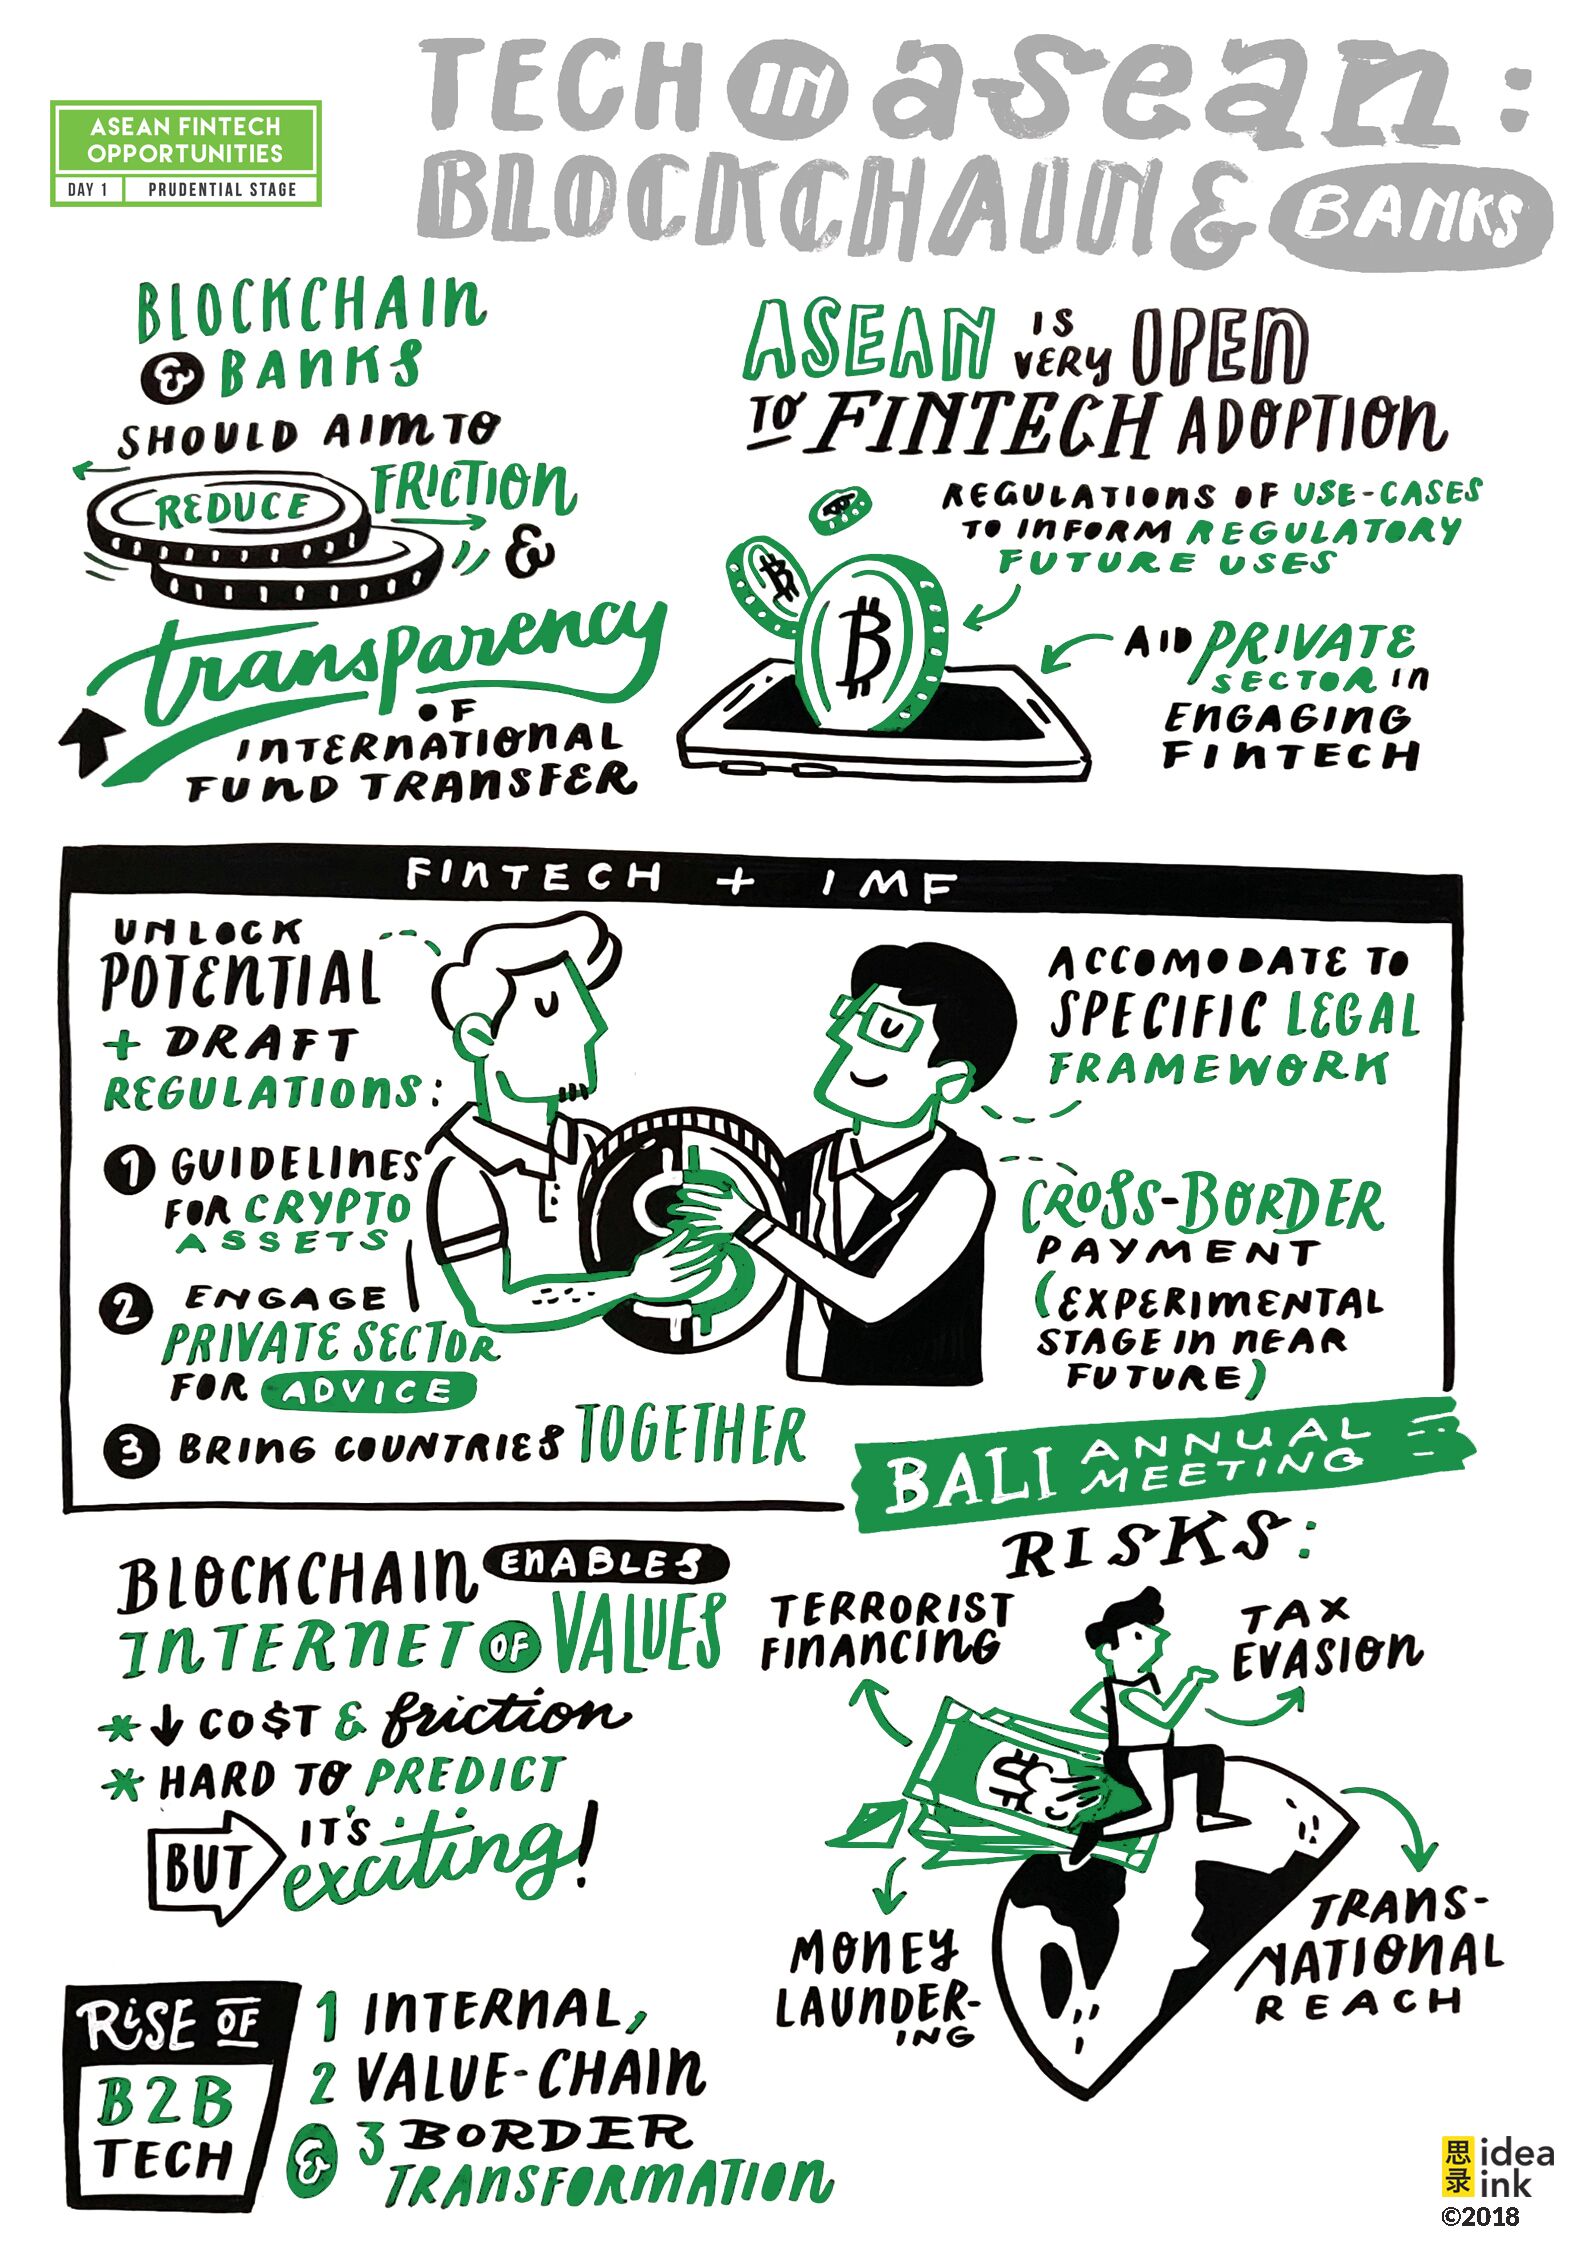 TECH IN asean:
BLOCKCHAIN & BANKS
ASEAN FINTECH
OPPORTUNITIES
DAY 1 PRUDENTIAL STAGE
BLOCKCHAIN
& BANKS
SHOULD AIM TO
REDUCE FRICTION
&
transparency
OF
INTERNATIONAL
FUND TRANSFER
ASEAN IS VERY OPEN
TO FINTECH ADOPTION
REGULATIONS OF USE-CASES
TO INFORM REGULATORY
FUTURE USES
AID PRIVATE
SECTOR IN
ENGAGING
FINTECH
FINTECH + IMF
UNLOCK
POTENTIAL
+ DRAFT
REGULATIONS:
1 GUIDELINES
FOR CRYPTO
ASSETS
2 ENGAGE
PRIVATE SECTOR
FOR ADVICE
3 BRING COUNTRIES TOGETHER
ACCOMODATE TO
SPECIFIC LEGAL
FRAMEWORK
CROSS-BORDER
PAYMENT
(EXPERIMENTAL
STAGE IN NEAR
FUTURE)
BALI ANNUAL
MEETING
BLOCKCHAIN ENABLES
INTERNET OF VALUES
* ↓ CO$T & friction
* HARD TO PREDICT
BUT IT'S
exciting!
RISKS:
TERRORIST
FINANCING
TAX
EVASION
MONEY
LAUNDER-
ING
TRANS-
NATIONAL
REACH
RISE OF
B2B
TECH
1 INTERNAL,
2 VALUE-CHAIN
& 3 BORDER
TRANSFORMATION
思录
idea
ink
©2018